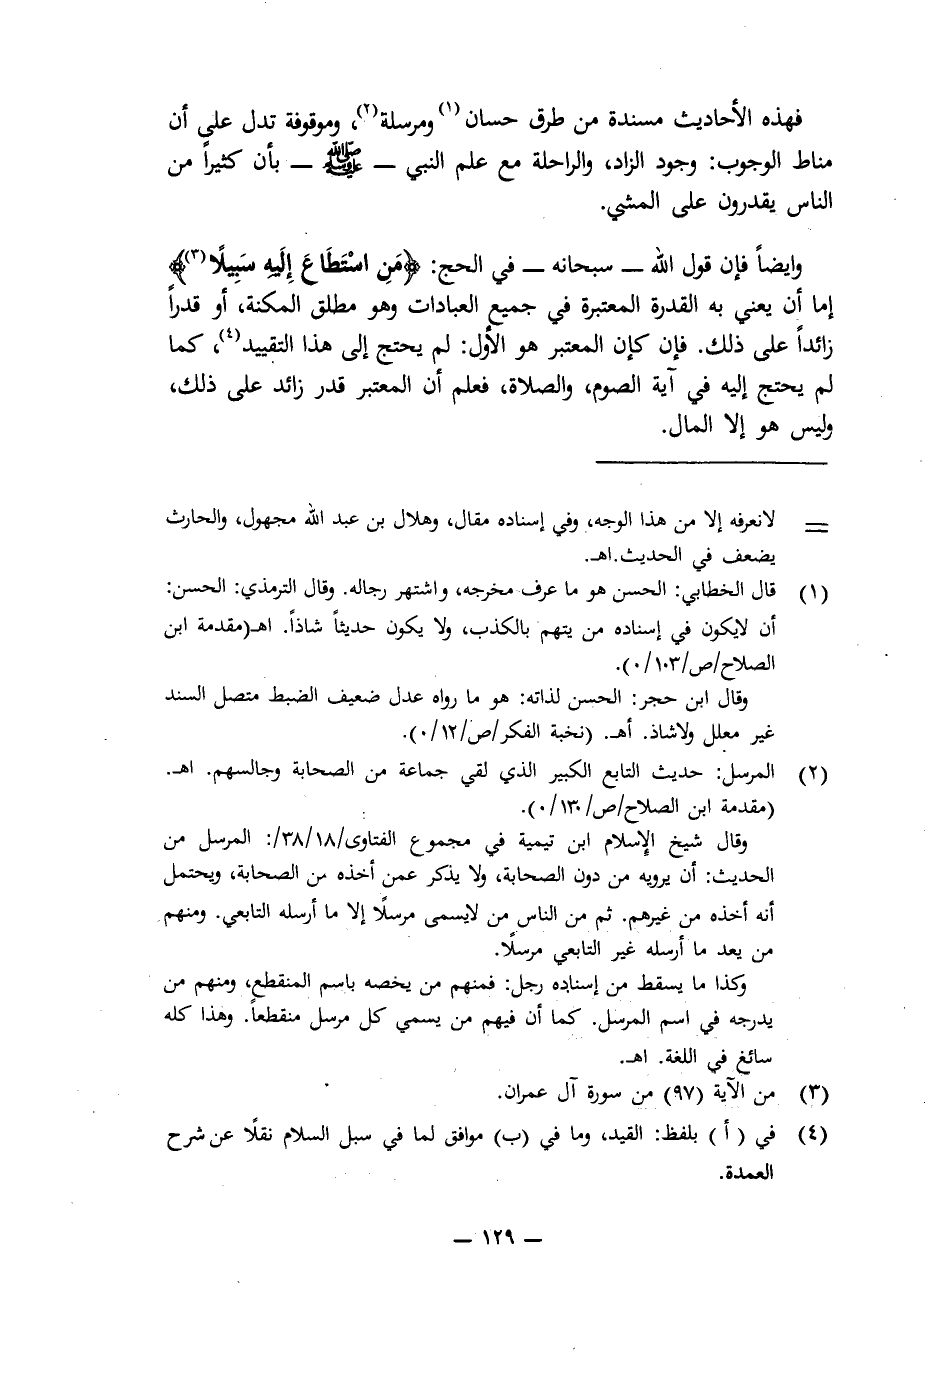 فهذه الأحاديث مسندة من طرق حسان(١) ومرسلة(٢)، وموقوفة تدل على أن
مناط الوجوب: وجود الزاد، والراحلة مع علم النبي ــ ﷺ ــ بأن كثيراً من
الناس يقدرون على المشي.
وايضاً فإن قول الله ــ سبحانه ــ في الحج: ﴿مَنِ اسْتَطَاعَ إِلَيهِ سَبِيلًا(٣)﴾
إما أن يعني به القدرة المعتبرة في جميع العبادات وهو مطلق المكنة، أو قدراً
زائداً على ذلك. فإن كان المعتبر هو الأول: لم يحتج إلى هذا التقييد(٤)، كما
لم يحتج إليه في آية الصوم، والصلاة، فعلم أن المعتبر قدر زائد على ذلك،
وليس هو إلا المال.
= لانعرفه إلا من هذا الوجه، وفي إسناده مقال، وهلال بن عبد الله مجهول، والحارث
يضعف في الحديث.اهـ.
(١) قال الخطابي: الحسن هو ما عرف مخرجه، واشتهر رجاله. وقال الترمذي: الحسن:
أن لايكون في إسناده من يتهم بالكذب، ولا يكون حديثاً شاذاً. اهـ(مقدمة ابن
الصلاح/ص/١٠٣/٠).
وقال ابن حجر: الحسن لذاته: هو ما رواه عدل ضعيف الضبط متصل السند
غير معلل ولاشاذ. أهـ. (نخبة الفكر/ص/١٢/٠).
(٢) المرسل: حديث التابع الكبير الذي لقي جماعة من الصحابة وجالسهم. اهـ.
(مقدمة ابن الصلاح/ص/١٣٠/٠).
وقال شيخ الإسلام ابن تيمية في مجموع الفتاوى/٣٨/١٨/: المرسل من
الحديث: أن يرويه من دون الصحابة، ولا يذكر عمن أخذه من الصحابة، ويحتمل
أنه أخذه من غيرهم. ثم من الناس من لايسمى مرسلًا إلا ما أرسله التابعي. ومنهم
من يعد ما أرسله غير التابعي مرسلًا.
وكذا ما يسقط من إسناده رجل: فمنهم من يخصه باسم المنقطع، ومنهم من
يدرجه في اسم المرسل. كما أن فيهم من يسمي كل مرسل منقطعاً. وهذا كله
سائغ في اللغة. اهـ.
(٣) من الآية (٩٧) من سورة آل عمران.
(٤) في ( أ ) بلفظ: القيد، وما في (ب) موافق لما في سبل السلام نقلًا عن شرح
العمدة.
ــ ١٢٩ ــ